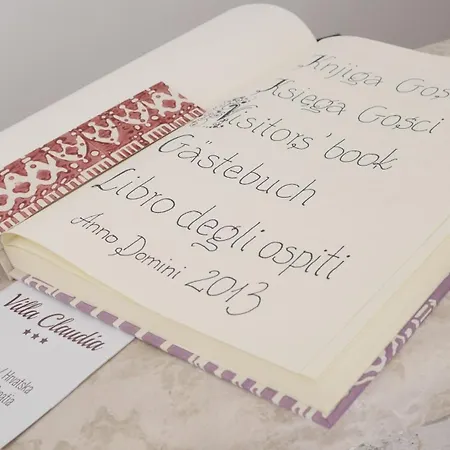 Knjiga Gos
Księga Gości
Visitors' book
Gästebuch
Libro degli ospiti
Anno Domini 2013
Villa Claudia
***
Hrvatska